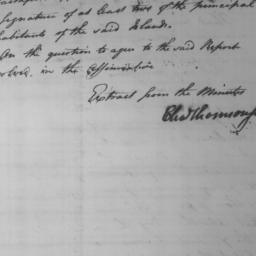 Signature of at least two of the principal
habitants of the said Islands.
On the question to agree to the said Report
in the affirmative
Extract from the Minutes